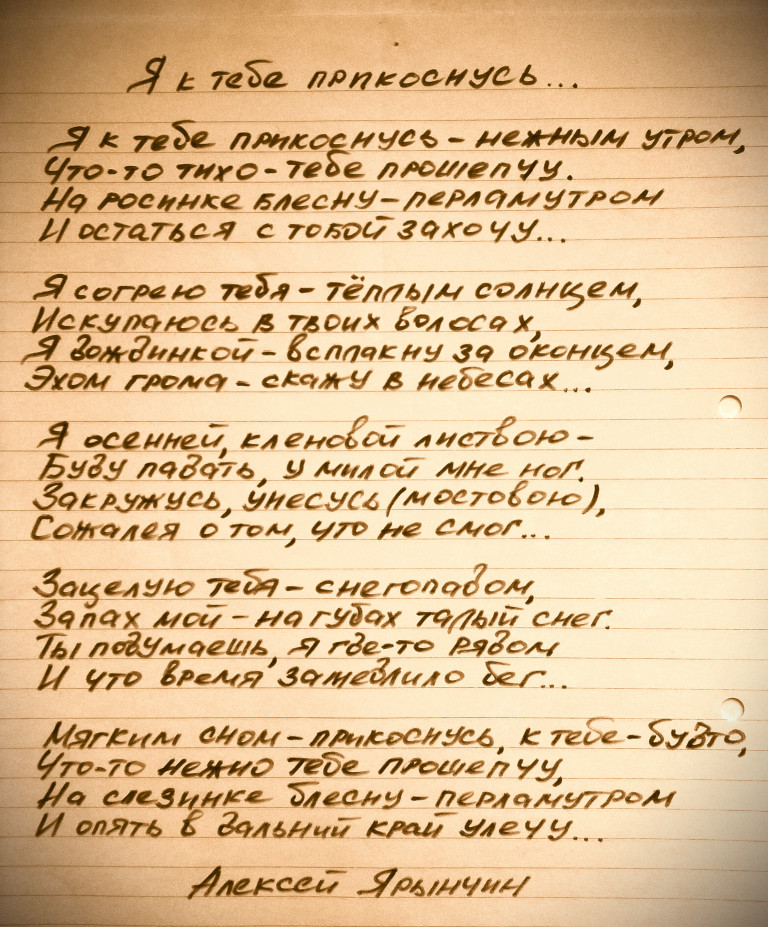 Я к тебе прикоснусь...
Я к тебе прикоснусь - нежным утром,
Что-то тихо - тебе прошепчу.
На росинке блесну - перламутром
И остаться с тобой захочу...
Я согрею тебя - тёплым солнцем,
Искупаюсь в твоих волосах,
Я дождинкой - всплакну за оконцем,
Эхом грома - скажу в небесах...
Я осенней, кленовой листвою -
Буду падать, у милой мне ног.
Закружусь, унесусь (мостовою),
Сожалея о том, что не смог...
Зацелую тебя - снегопадом,
Запах мой - на губах талый снег.
Ты подумаешь, я где-то рядом
И что время замедлило бег...
Мягким сном - прикоснусь, к тебе - будто,
Что-то нежно тебе прошепчу,
На слезинке блесну - перламутром
И опять в дальний край улечу...
Алексей Ярынчин